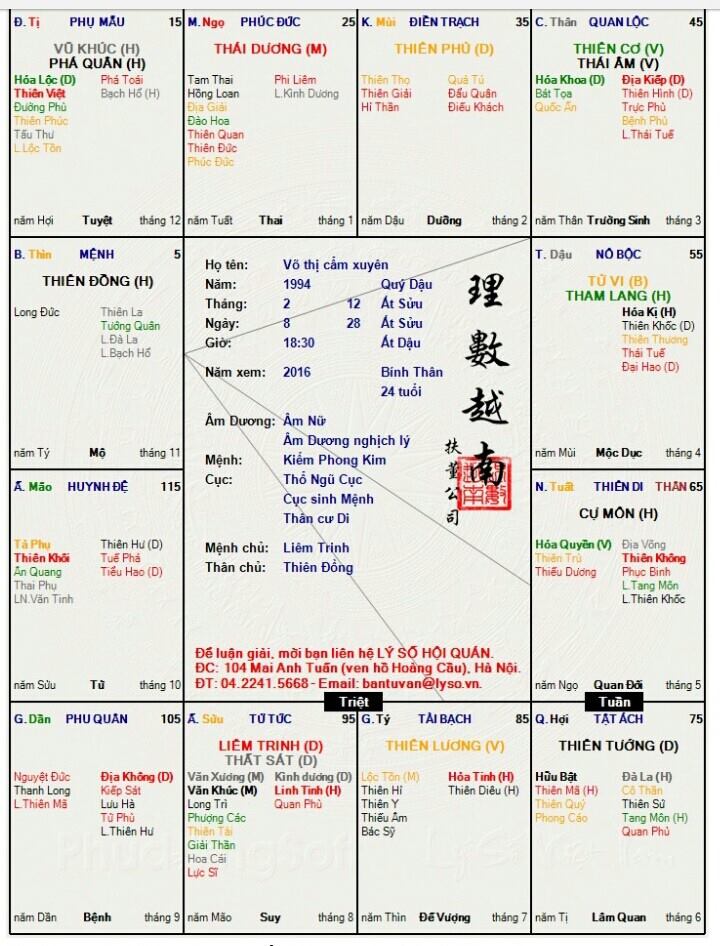 Đ. Tị PHỤ MẪU 15
VŨ KHÚC (H)
PHÁ QUÂN (H)
Hóa Lộc (D) Phá Toái
Thiên Việt Bạch Hổ (H)
Đường Phù
Thiên Phúc
Tấu Thư
L.Lộc Tồn
năm Hợi Tuyệt tháng 12
M. Ngọ PHÚC ĐỨC 25
THÁI DƯƠNG (M)
Tam Thai Phi Liêm
Hồng Loan L.Kình Dương
Địa Giải
Đào Hoa
Thiên Quan
Thiên Đức
Phúc Đức
năm Tuất Thai tháng 1
K. Mùi ĐIỀN TRẠCH 35
THIÊN PHỦ (D)
Thiên Thọ Quả Tú
Thiên Giải Đẩu Quân
Hỉ Thần Điếu Khách
năm Dậu Dưỡng tháng 2
C. Thân QUAN LỘC 45
THIÊN CƠ (V)
THÁI ÂM (V)
Hóa Khoa (D) Địa Kiếp (D)
Bát Tọa Thiên Hình (D)
Quốc Ấn Trực Phù
Bệnh Phù
L.Thái Tuế
năm Thân Trường Sinh tháng 3
B. Thìn MỆNH 5
THIÊN ĐỒNG (H)
Long Đức Thiên La
Tướng Quân
L.Đà La
L.Bạch Hổ
năm Tý Mộ tháng 11
Họ tên: Võ thị cẩm xuyên
Năm: 1994 Quý Dậu
Tháng: 2 12 Ất Sửu
Ngày: 8 28 Ất Sửu
Giờ: 18:30 Ất Dậu
Năm xem: 2016 Bính Thân
24 tuổi
Âm Dương: Âm Nữ
Âm Dương nghịch lý
Mệnh: Kiếm Phong Kim
Cục: Thổ Ngũ Cục
Cục sinh Mệnh
Thân cư Di
Mệnh chủ: Liêm Trinh
Thân chủ: Thiên Đồng
理數越南
扶董公司
Để luận giải, mời bạn liên hệ LÝ SỐ HỘI QUÁN.
ĐC: 104 Mai Anh Tuấn (ven hồ Hoàng Cầu), Hà Nội.
ĐT: 04.2241.5668 - Email: bantuvan@lyso.vn.
T. Dậu NÔ BỘC 55
TỬ VI (B)
THAM LANG (H)
Hóa Kị (H)
Thiên Khốc (D)
Thiên Thương
Thái Tuế
Đại Hao (D)
năm Mùi Mộc Dục tháng 4
Ấ. Mão HUYNH ĐỆ 115
Tả Phụ Thiên Hư (D)
Thiên Khôi Tuế Phá
Ân Quang Tiểu Hao (D)
Thai Phụ
LN.Văn Tinh
năm Sửu Tử tháng 10
N. Tuất THIÊN DI THÂN 65
CỰ MÔN (H)
Hóa Quyền (V) Địa Võng
Thiên Trù Thiên Không
Thiếu Dương Phục Binh
L.Tang Môn
L.Thiên Khốc
năm Ngọ Quan Đới tháng 5
Triệt
Tuần
G. Dần PHU QUÂN 105
Nguyệt Đức Địa Không (D)
Thanh Long Kiếp Sát
L.Thiên Mã Lưu Hà
Tử Phù
L.Thiên Hư
năm Dần Bệnh tháng 9
Ấ. Sửu TỬ TỨC 95
LIÊM TRINH (D)
THẤT SÁT (D)
Văn Xương (M) Kình dương (D)
Văn Khúc (M) Linh Tinh (H)
Long Trì Quan Phù
Phượng Các
Thiên Tài
Giải Thần
Hoa Cái
Lực Sĩ
năm Mão Suy tháng 8
G. Tý TÀI BẠCH 85
THIÊN LƯƠNG (V)
Lộc Tồn (M) Hỏa Tinh (H)
Thiên Hỉ Thiên Diêu (H)
Thiên Y
Thiếu Âm
Bác Sỹ
năm Thìn Đế Vượng tháng 7
Q. Hợi TẬT ÁCH 75
THIÊN TƯỚNG (D)
Hữu Bật Đà La (H)
Thiên Mã (H) Cô Thần
Thiên Quý Thiên Sứ
Phong Cáo Tang Môn (H)
Quan Phủ
năm Tị Lâm Quan tháng 6